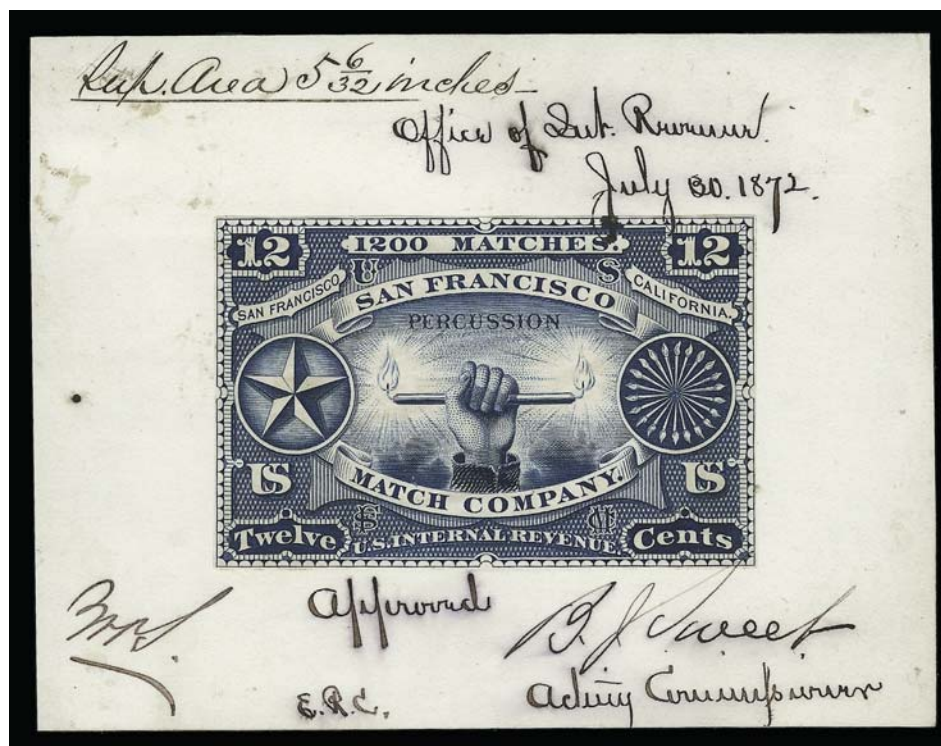 Sup. Area 5 6/32 inches
Office of Int. Revenue
July 30. 1872.
12 1200 MATCHES. 12
U S
SAN FRANCISCO CALIFORNIA.
SAN FRANCISCO
PERCUSSION
MATCH COMPANY.
US US
Twelve U.S. INTERNAL REVENUE Cents
Approved B. J. Sweet
E.R.C. Acting Commissioner